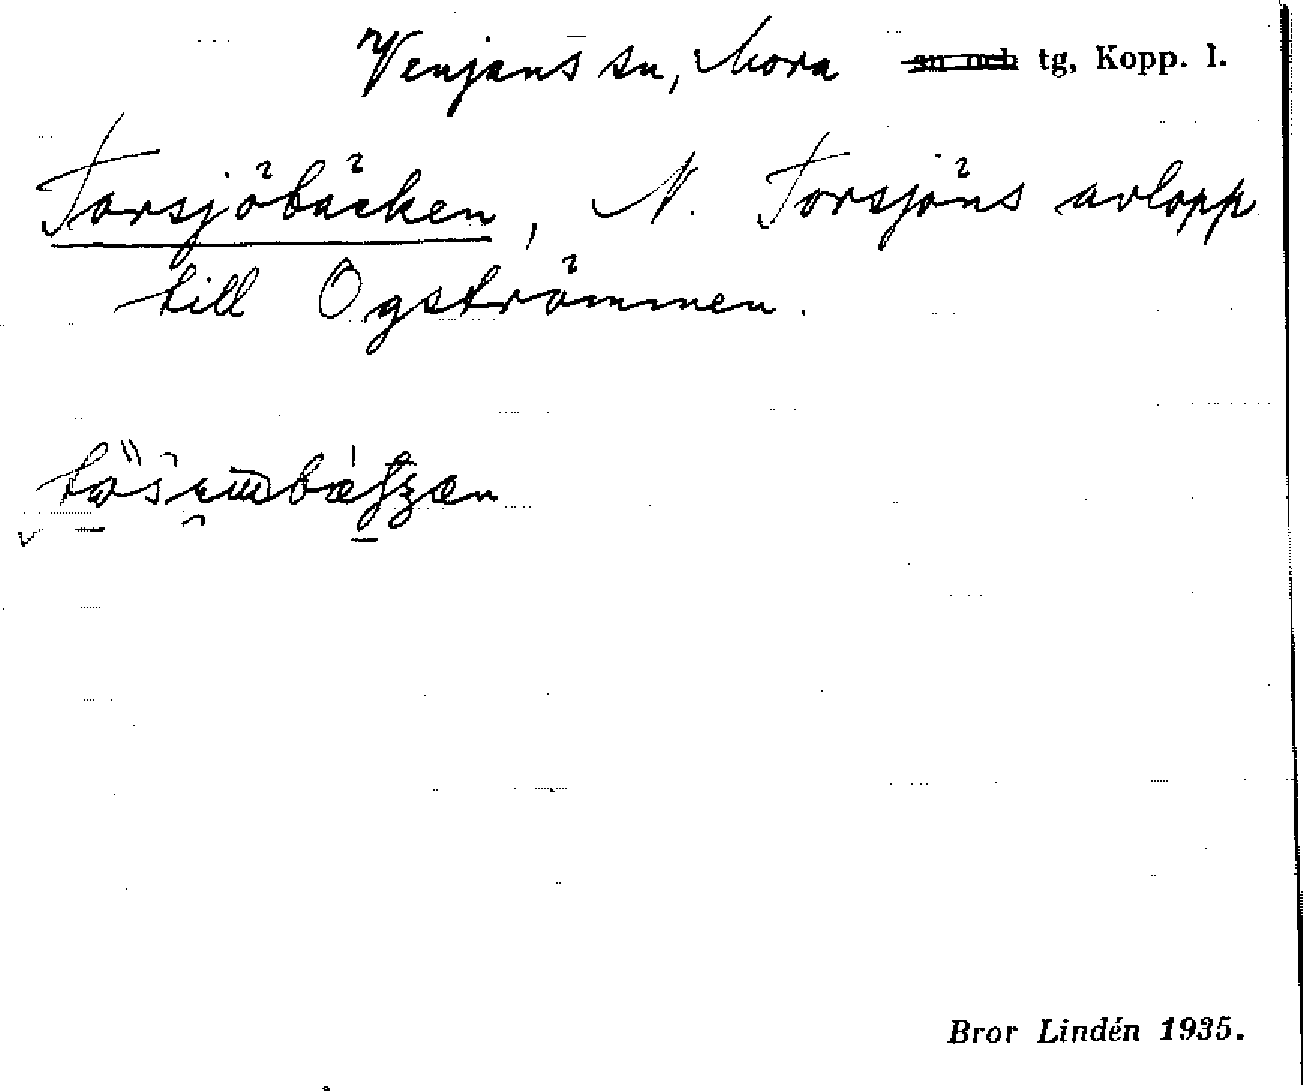 Venjans sn, Mora ~~sn och~~ tg, Kopp. l.
Torsjöbäcken, N. Torsjöns avlopp
till Ogströmmen.
Bror Lindén 1935.